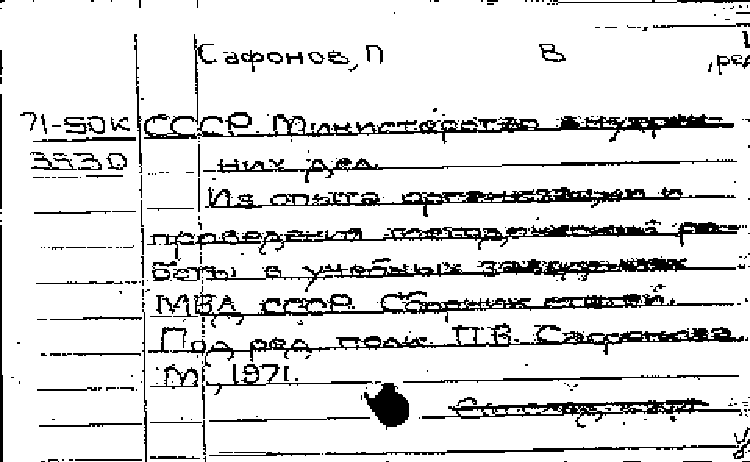 Сафонов, П В , ред
71-50К СССР. Министерство внутрен-
3930 них дел.
Из опыта организации и
проведения методической ра-
боты в учебных заведениях
МВД СССР. Сборник статей.
Под ред. полк. П.В. Сафонова.
М., 1971.